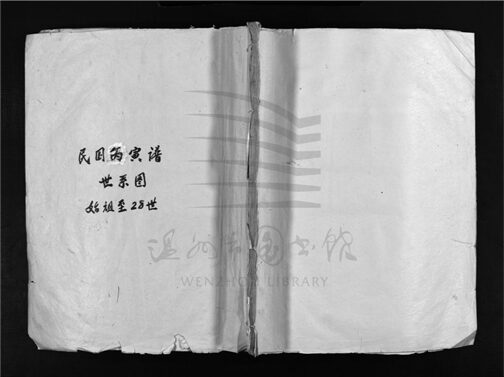 民国丙寅谱
世系图
始祖至25世
温州市图书馆
WENZHOU LIBRARY